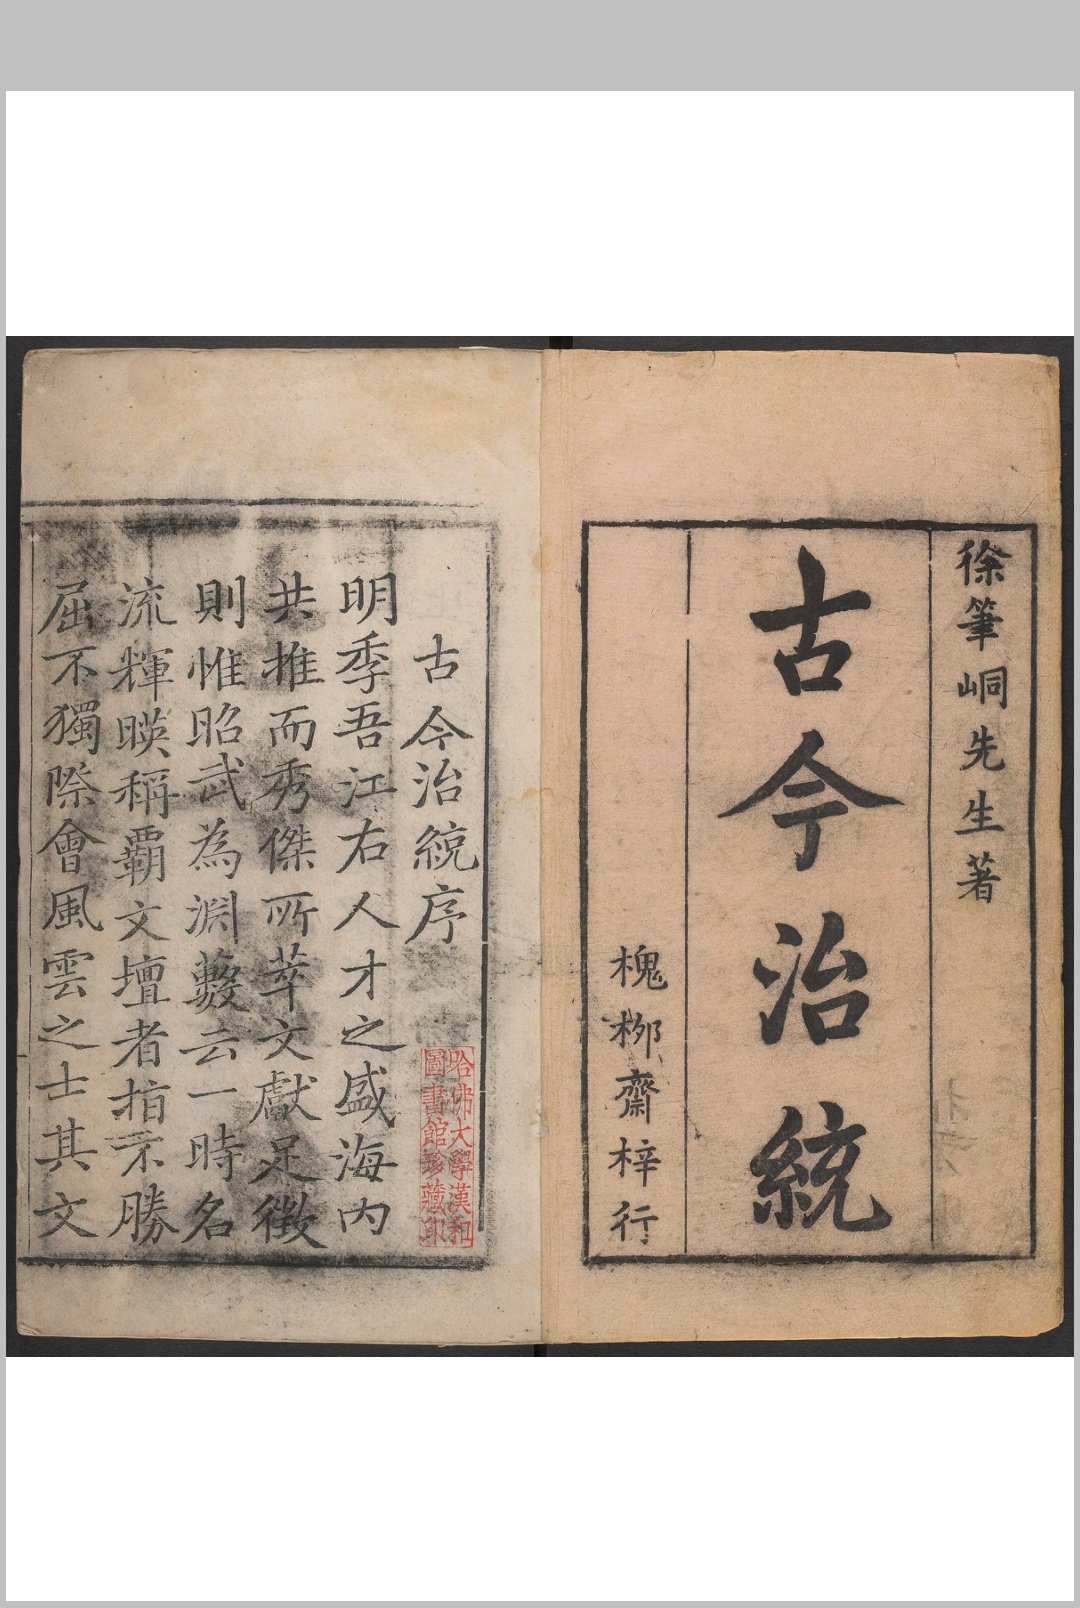 徐筆峒先生著
古今治統
槐柳齋梓行
古今治統序
明季吾江右人才之盛海内
共推而秀傑所萃文獻足徵
則惟昭武為淵藪云一時名
流輝暎稱霸文壇者指不勝
屈不獨際會風雲之士其文
哈佛大學漢和
圖書館珍藏印